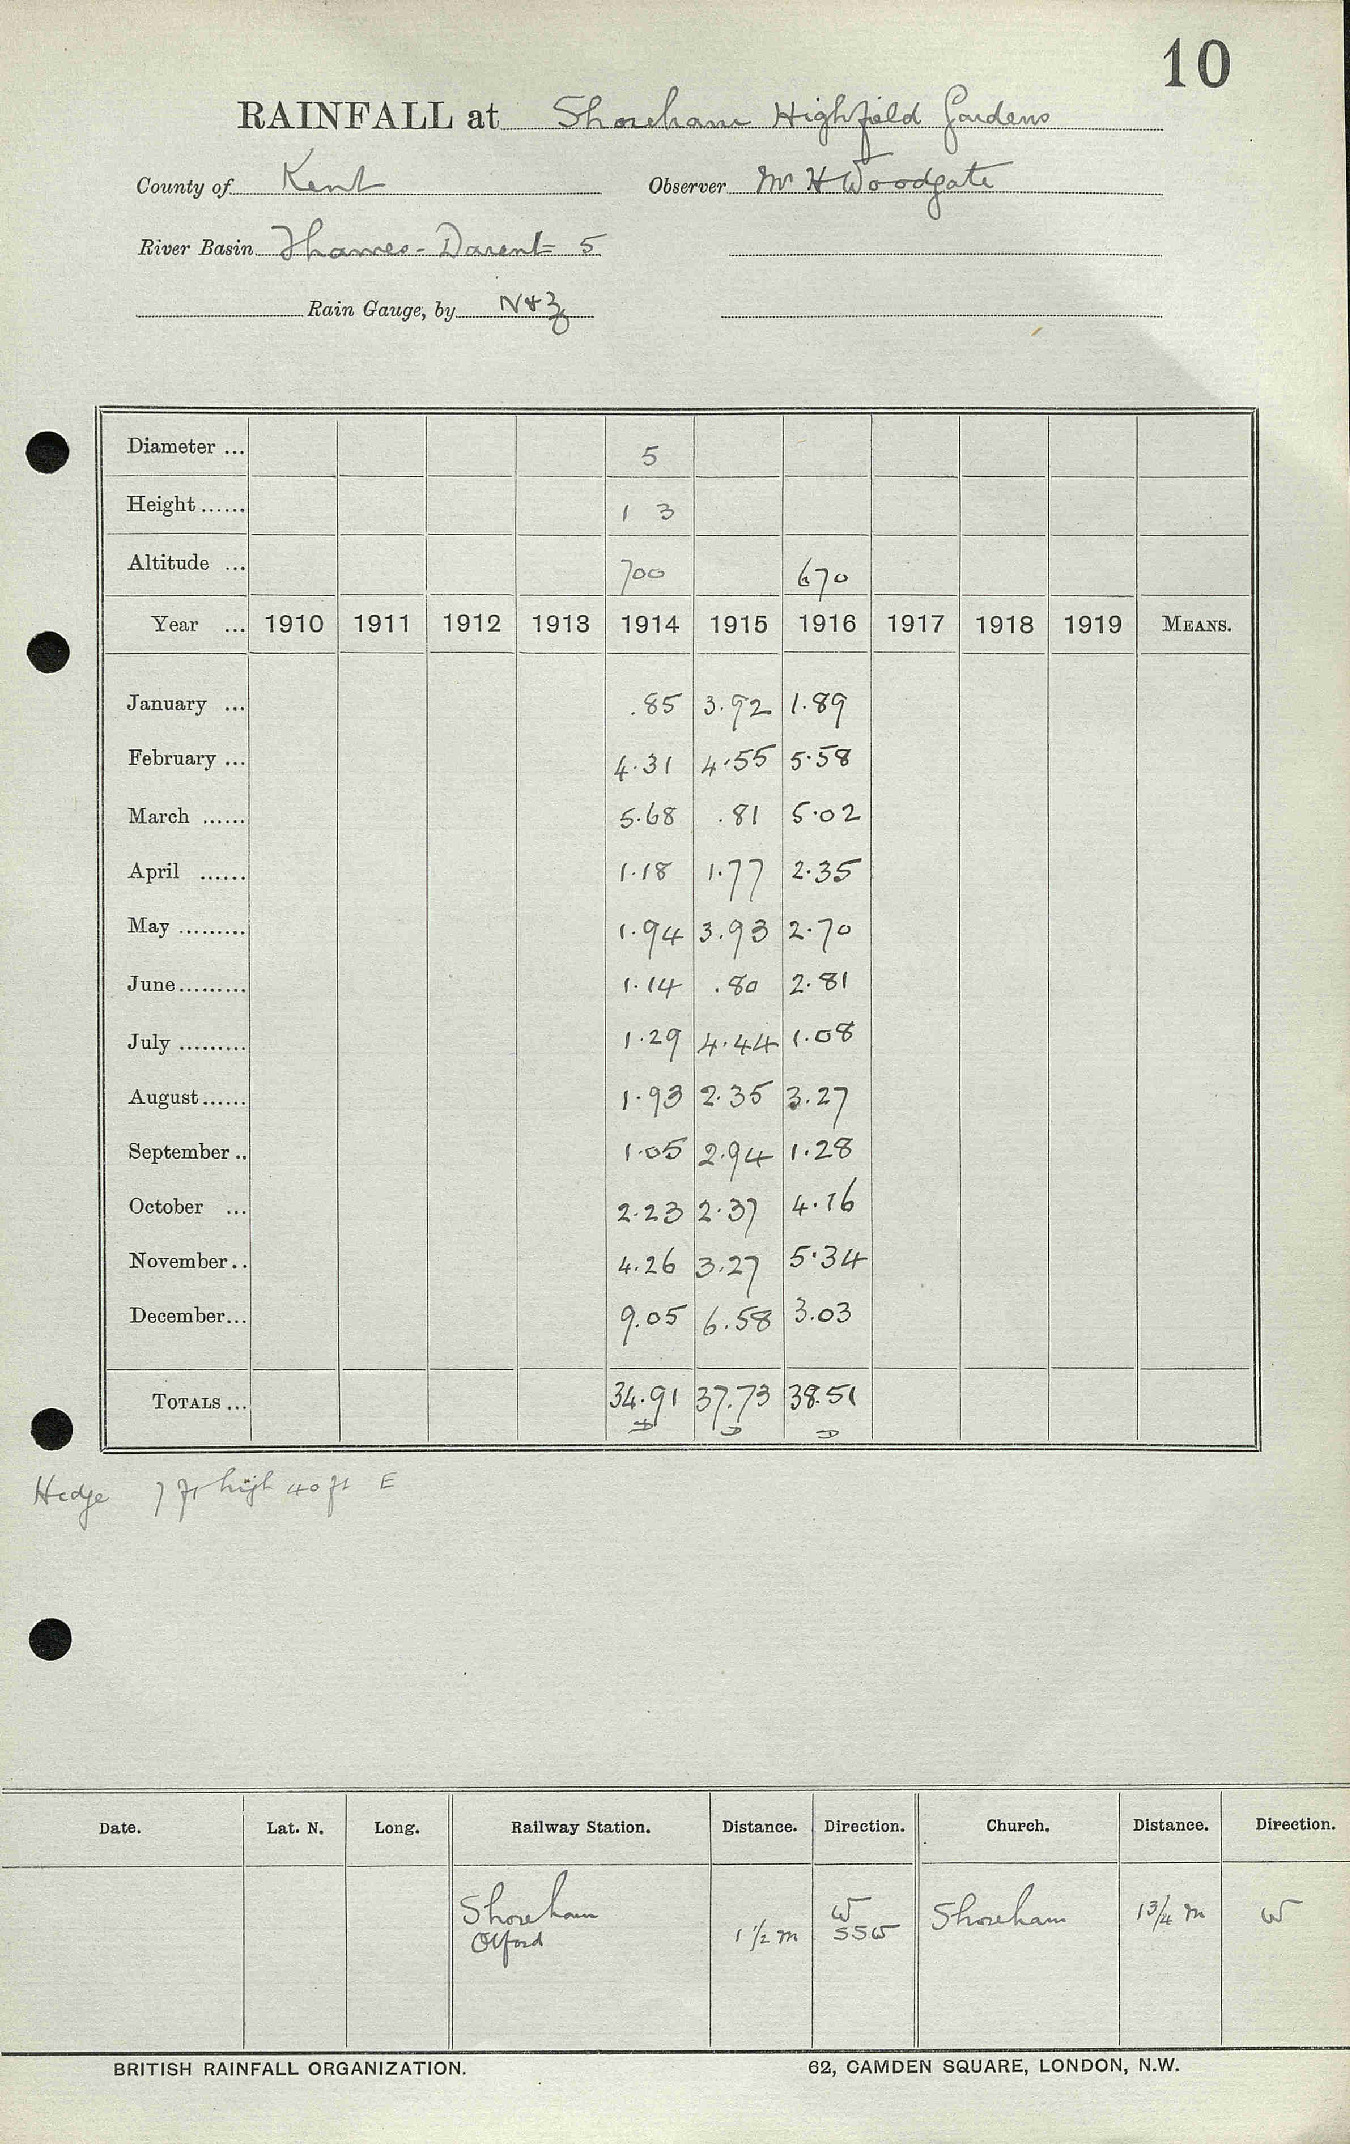 10
RAINFALL at Shoreham Highfield Gardens
County of Kent Observer Mr H Woodgate
River Basin Thames - Darent = 5
Rain Gauge, by N&Z
Diameter ... 5
Height ...... 1 3
Altitude ... 700 670
Year ... 1910 1911 1912 1913 1914 1915 1916 1917 1918 1919 MEANS.
January ... .85 3.92 1.89
February ... 4.31 4.55 5.58
March ...... 5.68 .81 5.02
April ...... 1.18 1.77 2.35
May ......... 1.94 3.93 2.70
June ......... 1.14 .80 2.81
July ......... 1.29 4.44 1.08
August ...... 1.93 2.35 3.27
September .. 1.05 2.94 1.28
October ... 2.23 2.37 4.16
November .. 4.26 3.27 5.34
December ... 9.05 6.58 3.03
TOTALS ... 34.91 37.73 38.51
Hedge 7 ft high 40 ft E
Date. Lat. N. Long. Railway Station. Distance. Direction. Church. Distance. Direction.
Shoreham W Shoreham 1 3/4 m W
Otford 1 1/2 m SSW
BRITISH RAINFALL ORGANIZATION. 62, CAMDEN SQUARE, LONDON, N.W.